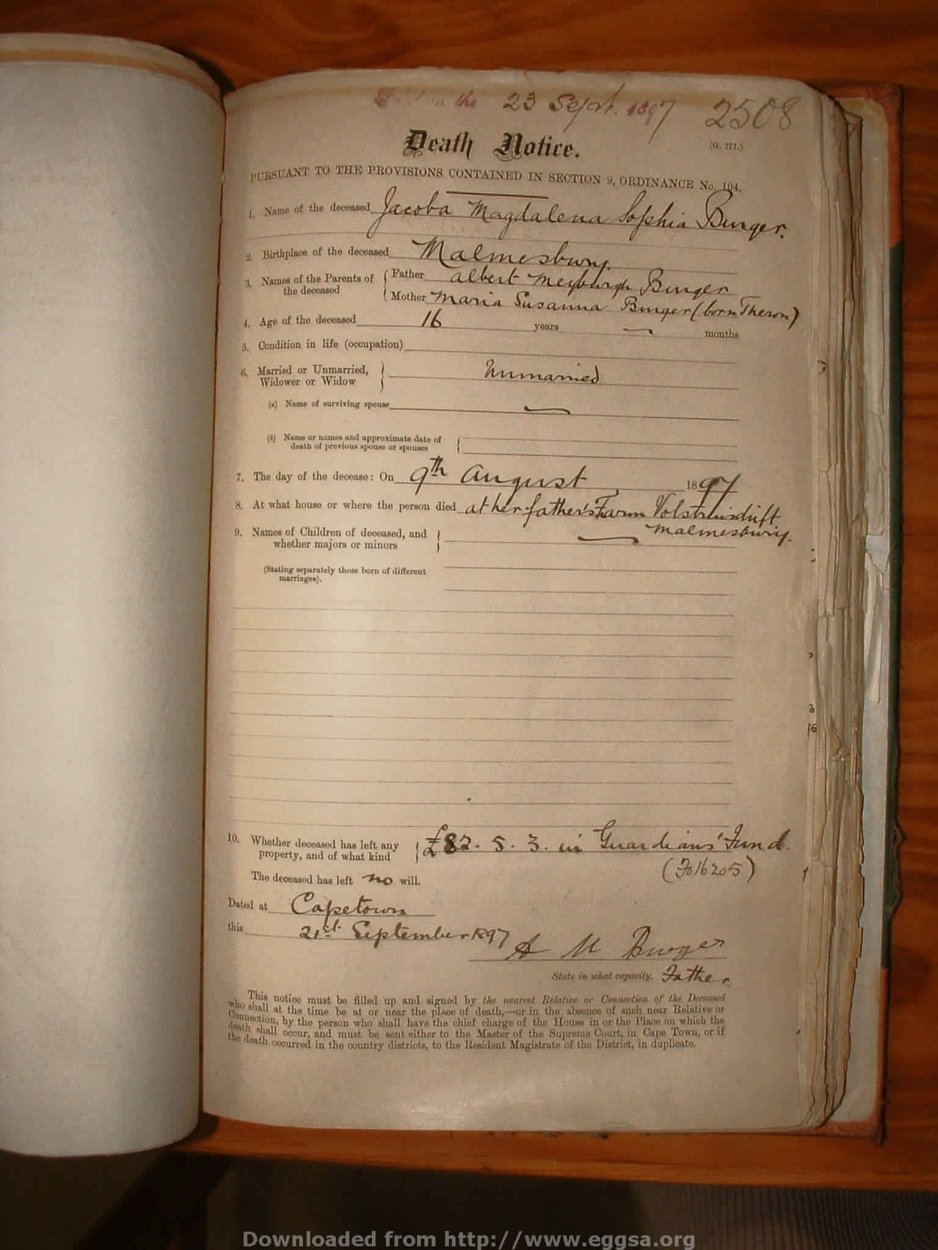 the 23 Sept. 1897 2508
Death Notice.
(G. 271.)
PURSUANT TO THE PROVISIONS CONTAINED IN SECTION 9, ORDINANCE No. 104.
1. Name of the deceased Jacoba Magdalena Sophia Burger.
2. Birthplace of the deceased Malmesbury
3. Names of the Parents of the deceased { Father Albert Meyburgh Burger
{ Mother Maria Susanna Burger (born Theron)
4. Age of the deceased 16 years — months
5. Condition in life (occupation)
6. Married or Unmarried, Widower or Widow } Unmarried
(a) Name of surviving spouse —
(b) Name or names and approximate date of death of previous spouse or spouses {
7. The day of the decease: On 9th August 1897
8. At what house or where the person died at her father's Farm
Malmesbury.
9. Names of Children of deceased, and whether majors or minors } —
(Stating separately those born of different marriages).
10. Whether deceased has left any property, and of what kind } £82. 5. 3. in Guardians' Fund.
(Fo 16205)
The deceased has left no will.
Dated at Capetown
this 21st September 1897
A M Burger
State in what capacity. Father
This notice must be filled up and signed by the nearest Relative or Connection of the Deceased
who shall at the time be at or near the place of death,—or in the absence of such near Relative or
Connection, by the person who shall have the chief charge of the House in or the Place on which the
death shall occur, and must be sent either to the Master of the Supreme Court, in Cape Town, or if
the death occurred in the country districts, to the Resident Magistrate of the District, in duplicate.
Downloaded from http://www.eggsa.org